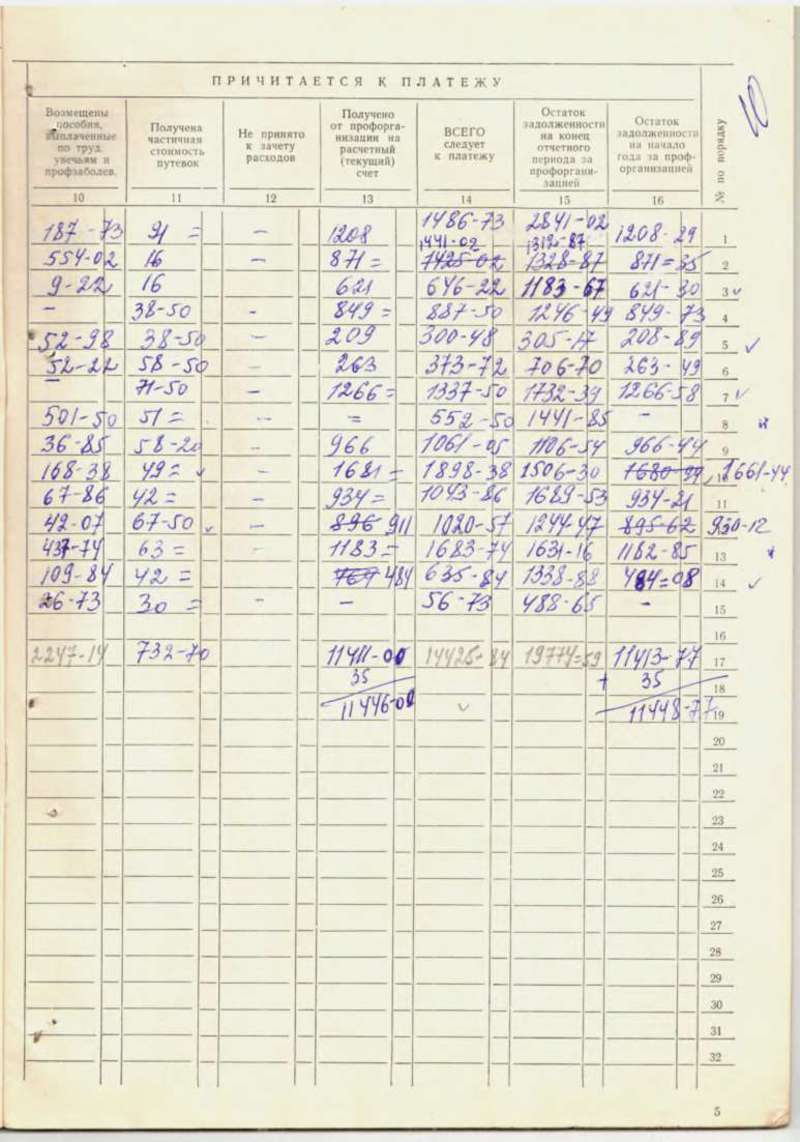 ПРИЧИТАЕТСЯ К ПЛАТЕЖУ
10
Возмещены пособия, выплаченные по труд. увечьям и профзаболев. | Получена частичная стоимость путевок | Не принято к зачету расходов | Получено от профорганизации на расчетный (текущий) счет | ВСЕГО следует к платежу | Остаток задолженности на конец отчетного периода за профорганизацией | Остаток задолженности на начало года за профорганизацией | № по порядку
10 11 12 13 14 15 16
187-73 91= - 1208 1486-73 2841-02 1208-29 1
1441-02 1312-87
554-02 16 - 871= 1425-02 1328-87 871=35 2
9-22 16 621 646-22 1183-67 621-30 3 ✓
- 38-50 - 849= 887-50 1246-49 849-73 4
52-98 38-50 - 209 300-48 305-17 208-89 5 ✓
52-22 58-50 - 263 373-72 706-70 263-49 6
- 71-50 - 1266= 1337-50 1732-39 1266-58 7 ✓
501-50 51= - = 552-50 1441-85 - 8
36-85 58-20 - 966 1061-05 1106-54 966-44 9
168-38 49= ✓ - 1681= 1898-38 1506-30 1680-94 10 1661-44
67-86 42= - 934= 1043-86 1689-53 934-21 11
42-07 67-50 ✓ - 896 911 1020-57 1244-47 895-62 930-12
437-74 63= - 1183= 1683-74 1631-16 1182-85 13
109-84 42= 484 635-84 1338-88 484=08 14 ✓
26-73 30= - - 56-73 488-65 - 15
16
2247-14 732-70 11411-00 14425-84 19774=59 11413-77 17
35 + 35 18
11446-00 ✓ 11448-77 19
20
21
22
23
24
25
26
27
28
29
30
31
32
5